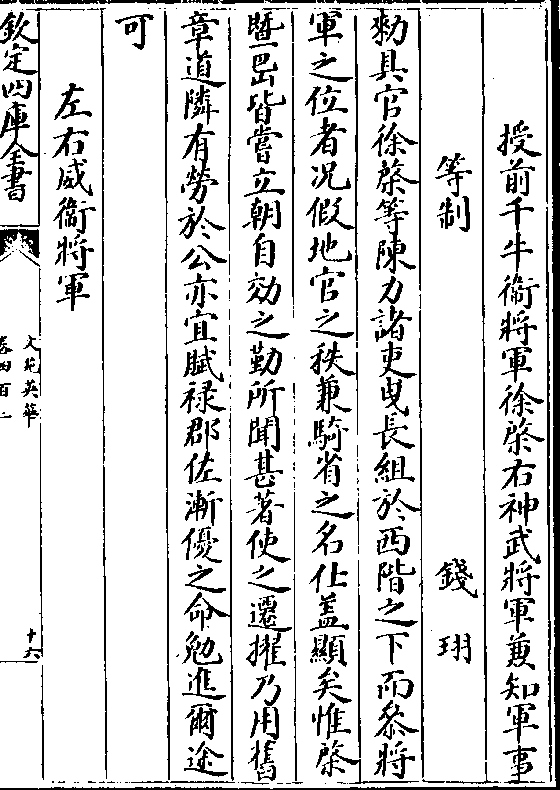 授前千牛衞將軍徐棨右神武將軍兼知軍事
等制　錢珝
勅具官徐棨等陳力諸吏曳長組於西階之下而叅將
軍之位者况假地官之秩兼騎省之名仕蓋顯矣惟棨
暨嵒皆嘗立朝自効之勤所聞甚著使之遷擢乃用舊
章道隣有勞於公亦宜賦祿郡佐漸優之命勉進爾途
可
左右威衞將軍
欽定四庫全書
文苑英華
卷四百一
十六